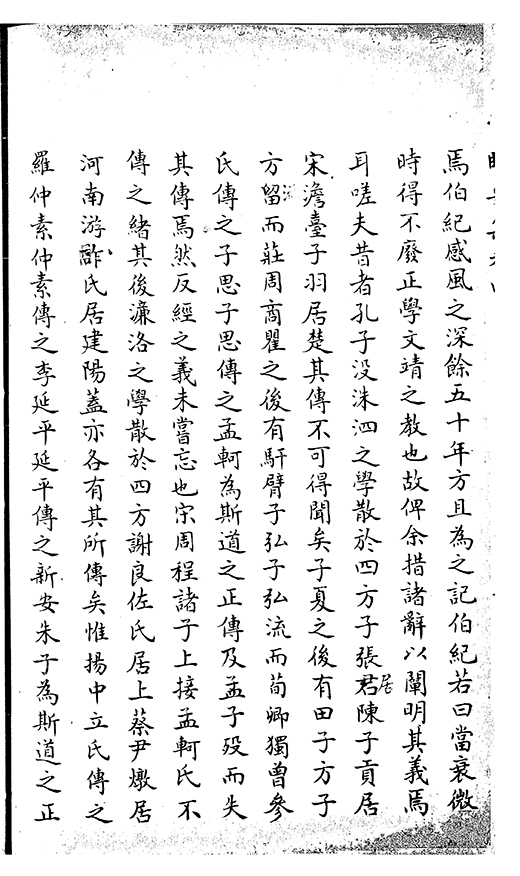 焉伯紀感風之深餘五十年方且為之記伯紀若曰當衰微
時得不廢正學文靖之教也故俾余措諸辭以闡明其義焉
耳嗟夫昔者孔子没洙泗之學散於四方子張君居陳子貢居
宋澹臺子羽居楚其傳不可得聞矣子夏之後有田子方子
方留而莊周商瞿之後有馯臂子弘子弘流而荀卿獨曾參
氏傳之子思子思傳之孟軻為斯道之正傳及孟子歿而失
其傳焉然反經之義未嘗忘也宗周程諸子上接孟軻氏不
傳之緒其後濂洛之學散於四方謝良佐氏居上蔡尹燉居
河南游酢氏居建陽蓋亦各有其所傳矣惟揚中立氏傳之
羅仲素仲素傳之李延平延平傳之新安朱子為斯道之正